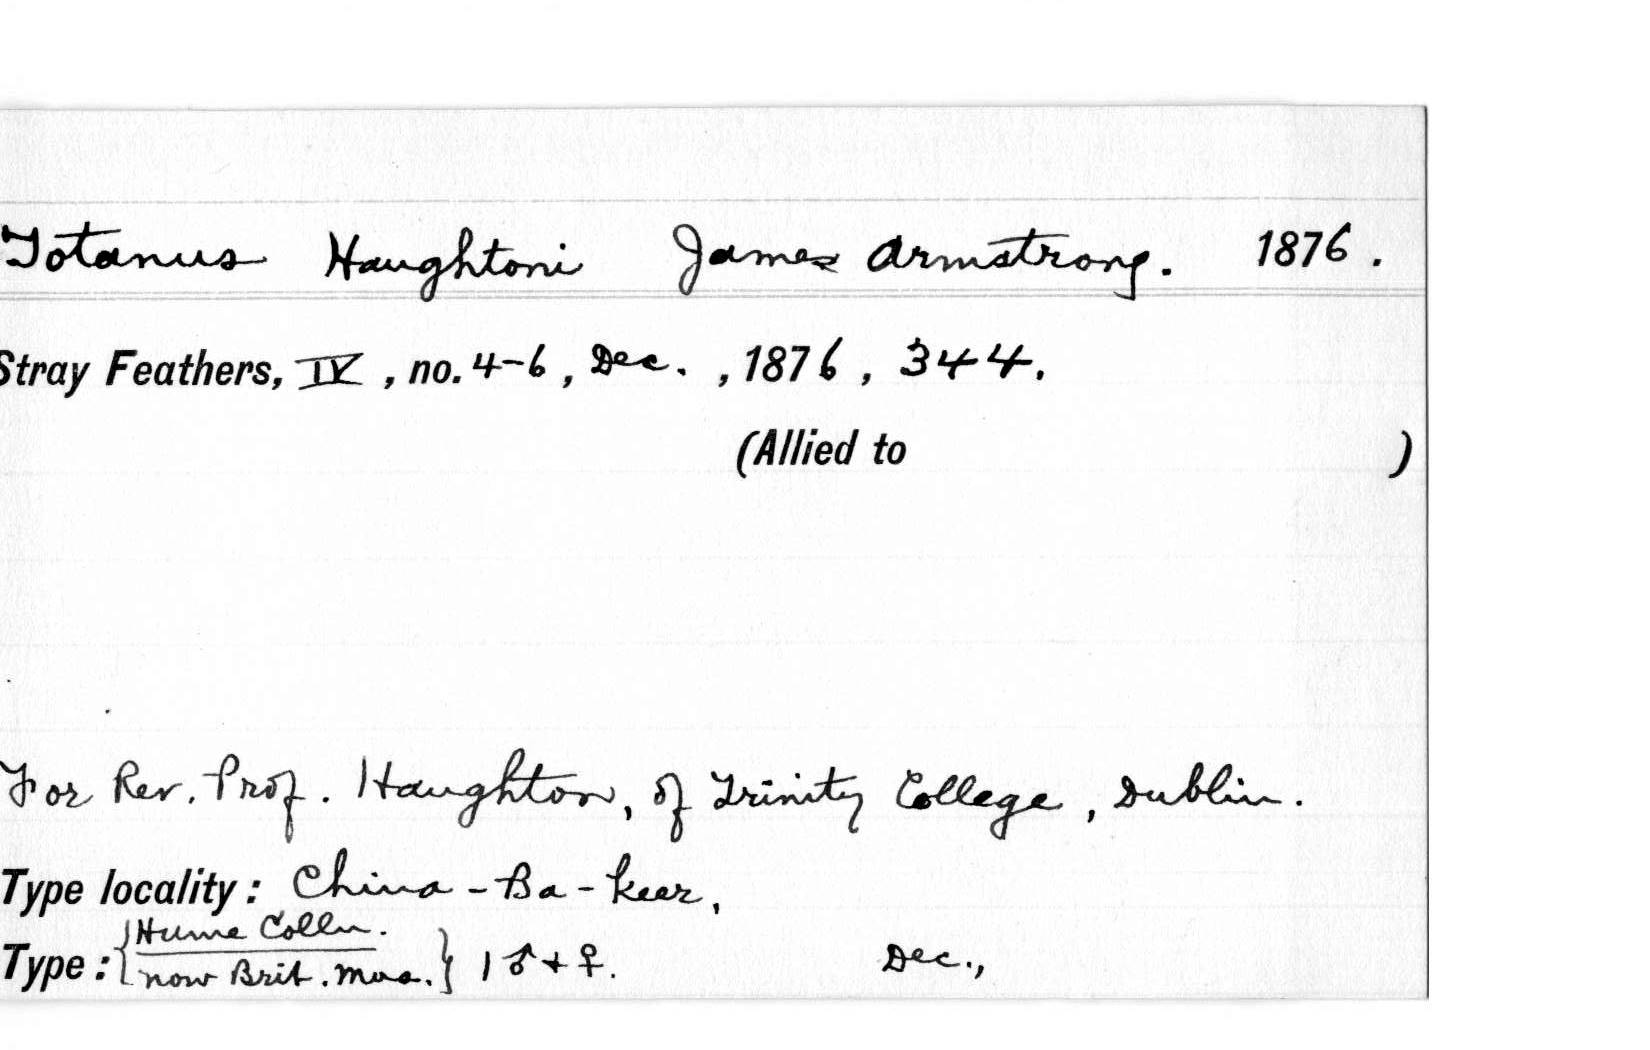 Totanus Haughtoni James Armstrong. 1876.
Stray Feathers, IV, no. 4-6, Dec., 1876, 344.
(Allied to )
For Rev. Prof. Haughton, of Trinity College, Dublin.
Type locality: China-Ba-keer,
Hume Colln.
Type: { now Brit. Mus. } 1 ♂ + ♀. Dec.,